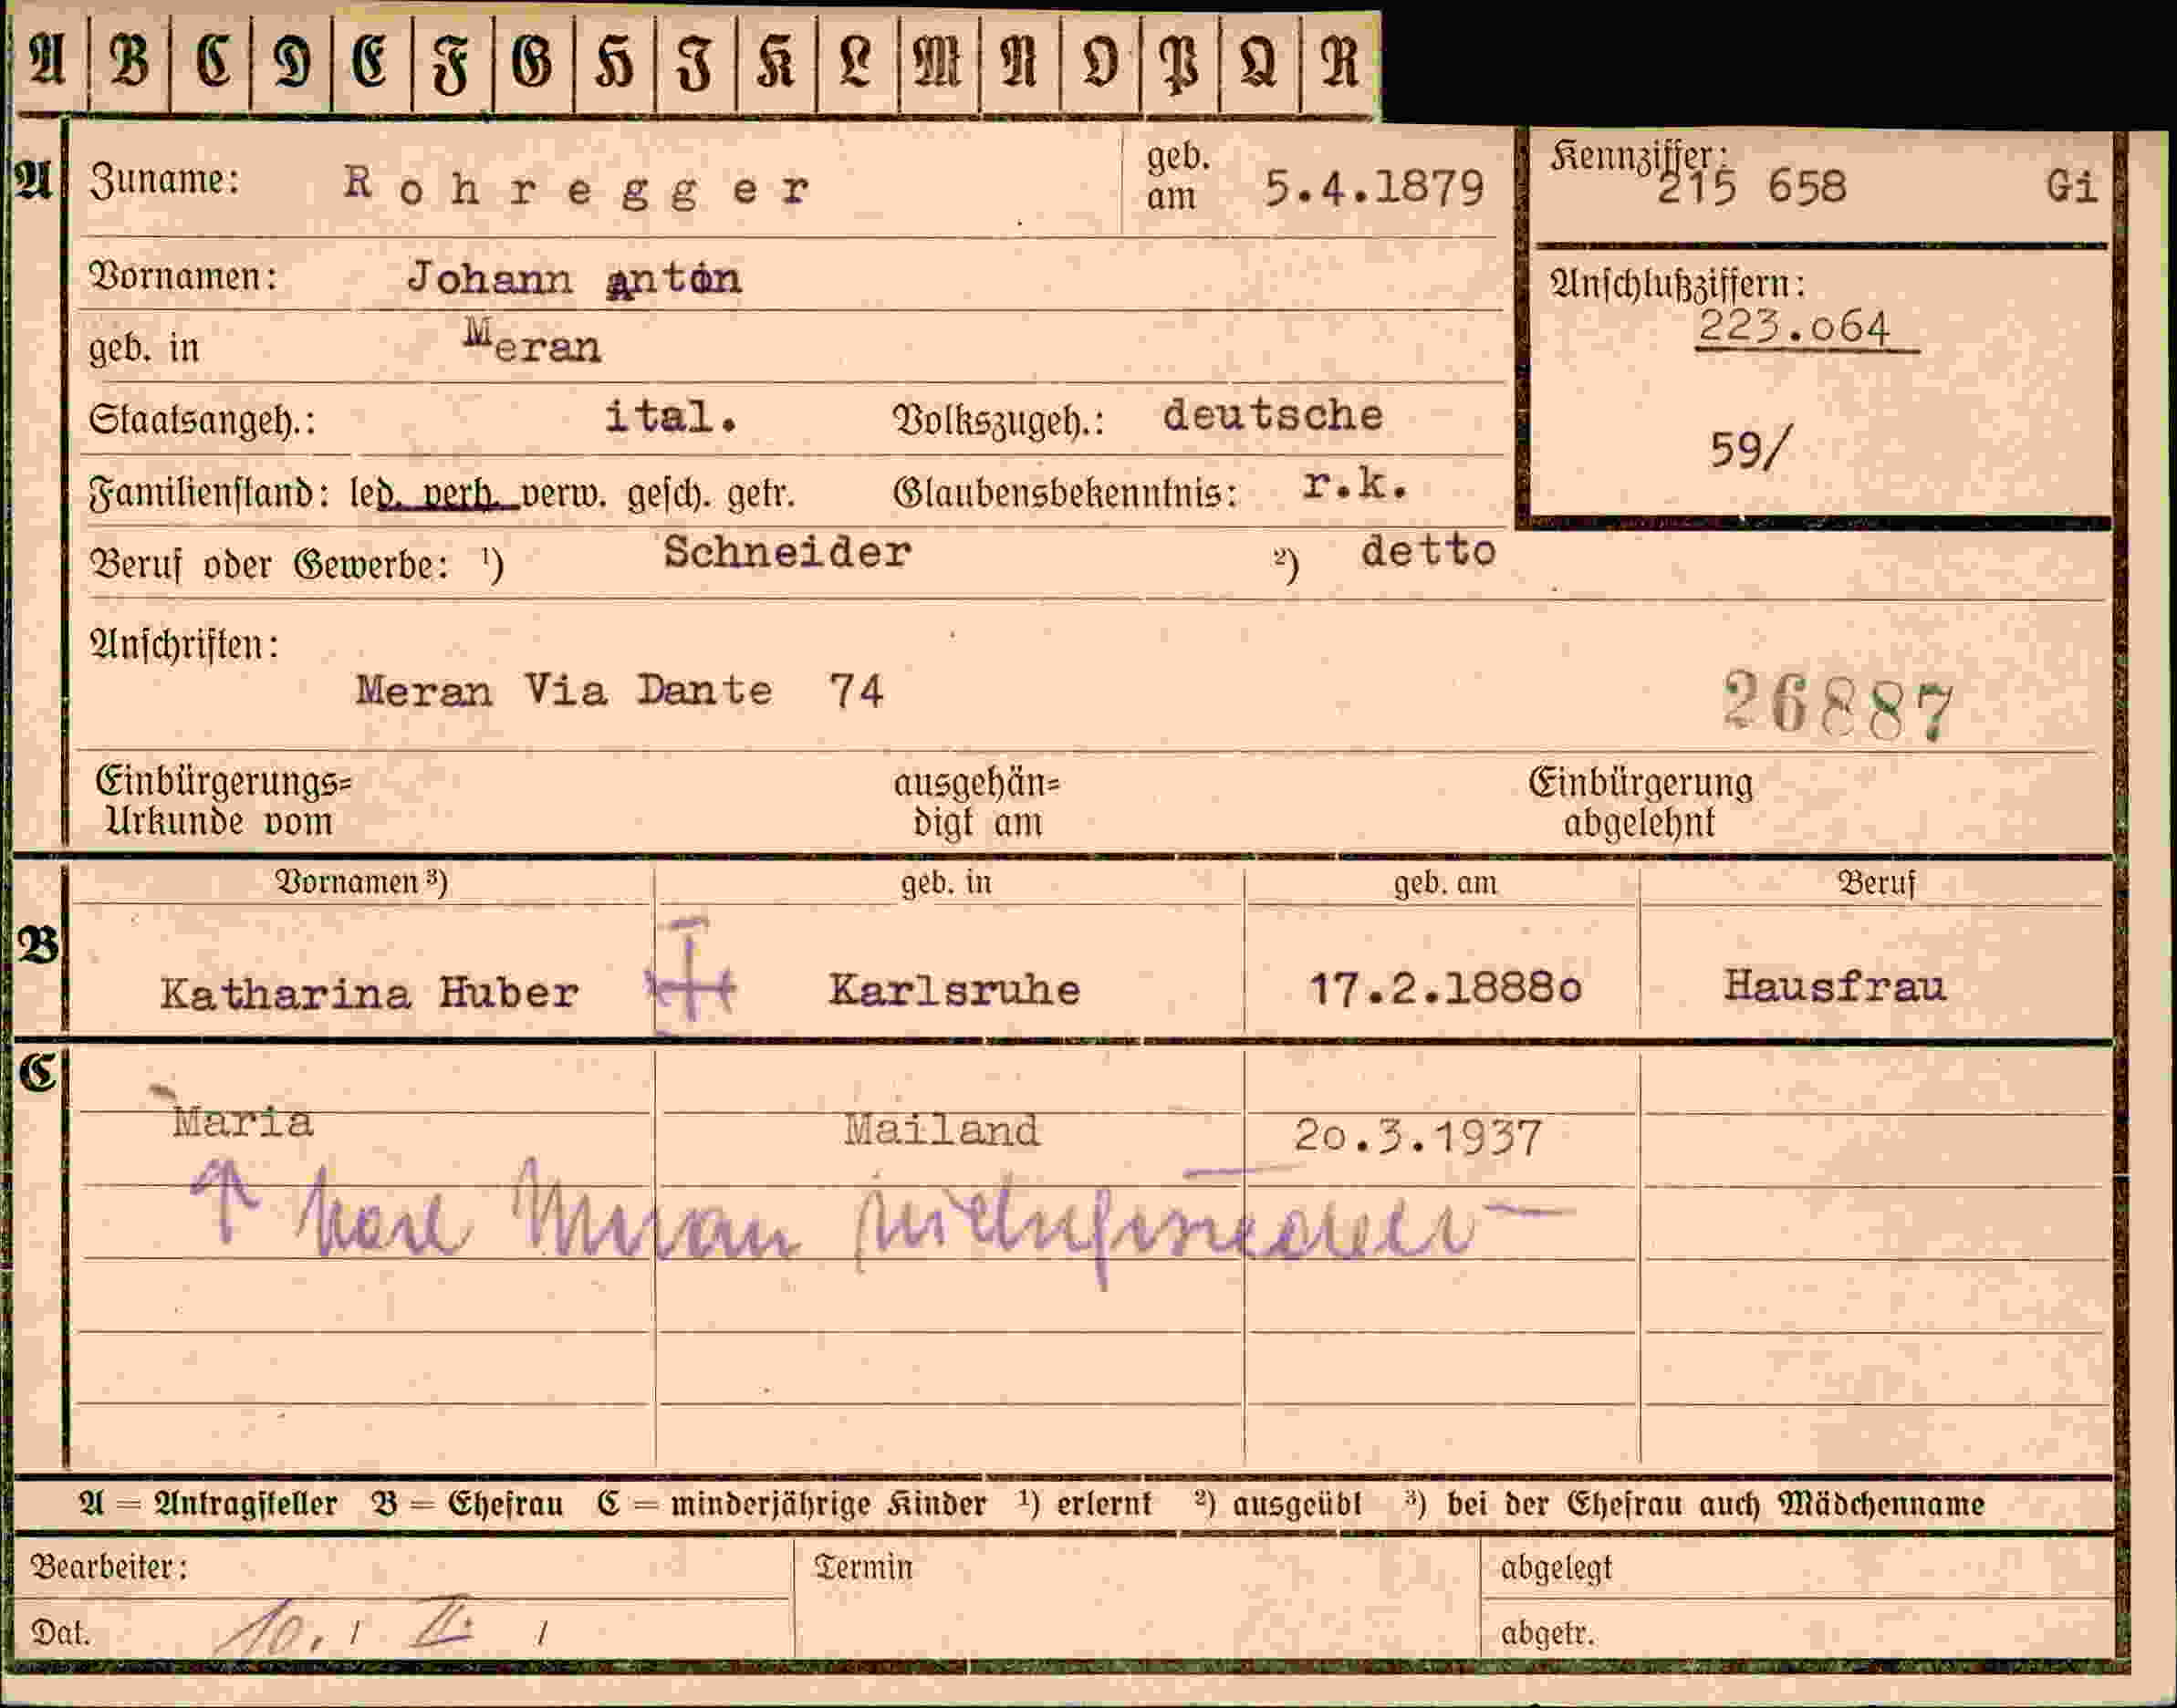 A B C D E F G H I K L M N O P Q R
A Zuname: Rohregger geb. am 5.4.1879 Kennziffer: 215 658 Gi
Vornamen: Johann anton Anschlußziffern:
223.o64
geb. in Meran
Staatsangeh.: ital. Volkszugeh.: deutsche 59/
Familienstand: led. verh. verw. gesch. getr. Glaubensbekenntnis: r.k.
Beruf oder Gewerbe: ¹) Schneider ²) detto
Anschriften:
Meran Via Dante 74 26887
Einbürgerungs= ausgehän= Einbürgerung
Urkunde vom digt am abgelehnt
Vornamen ³) geb. in geb. am Beruf
B Katharina Huber Karlsruhe 17.2.1888o Hausfrau
C
Maria Mailand 2o.3.1937
Meran
A = Antragsteller B = Ehefrau C = minderjährige Kinder ¹) erlernt ²) ausgeübt ³) bei der Ehefrau auch Mädchenname
Bearbeiter: Termin abgelegt
Dat. 10. / II. / abgetr.